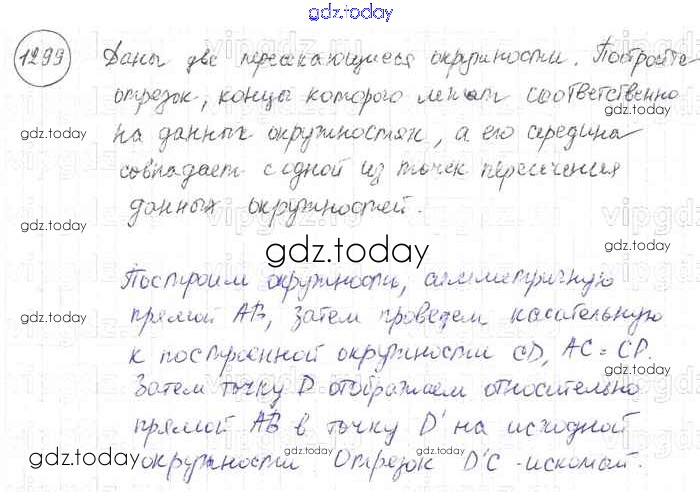 gdz.today
1299 Даны две пересекающиеся окружности. Постройте
отрезок, концы которого лежат соответственно
gdz.today gdz.today
на данных окружностях, а его середина
совпадает с одной из точек пересечения
gdz.today gdz.today
данных окружностей.
gdz.today
Построим окружность, симметричную
прямой AB, затем проведем касательную
gdz.today gdz.today
к построенной окружности CD, AC = CP.
Затем точку D отображаем относительно
gdz.today
прямой AB в точку D' на исходной
gdz.today
окружности Отрезок D'C - искомый.
gdz.today